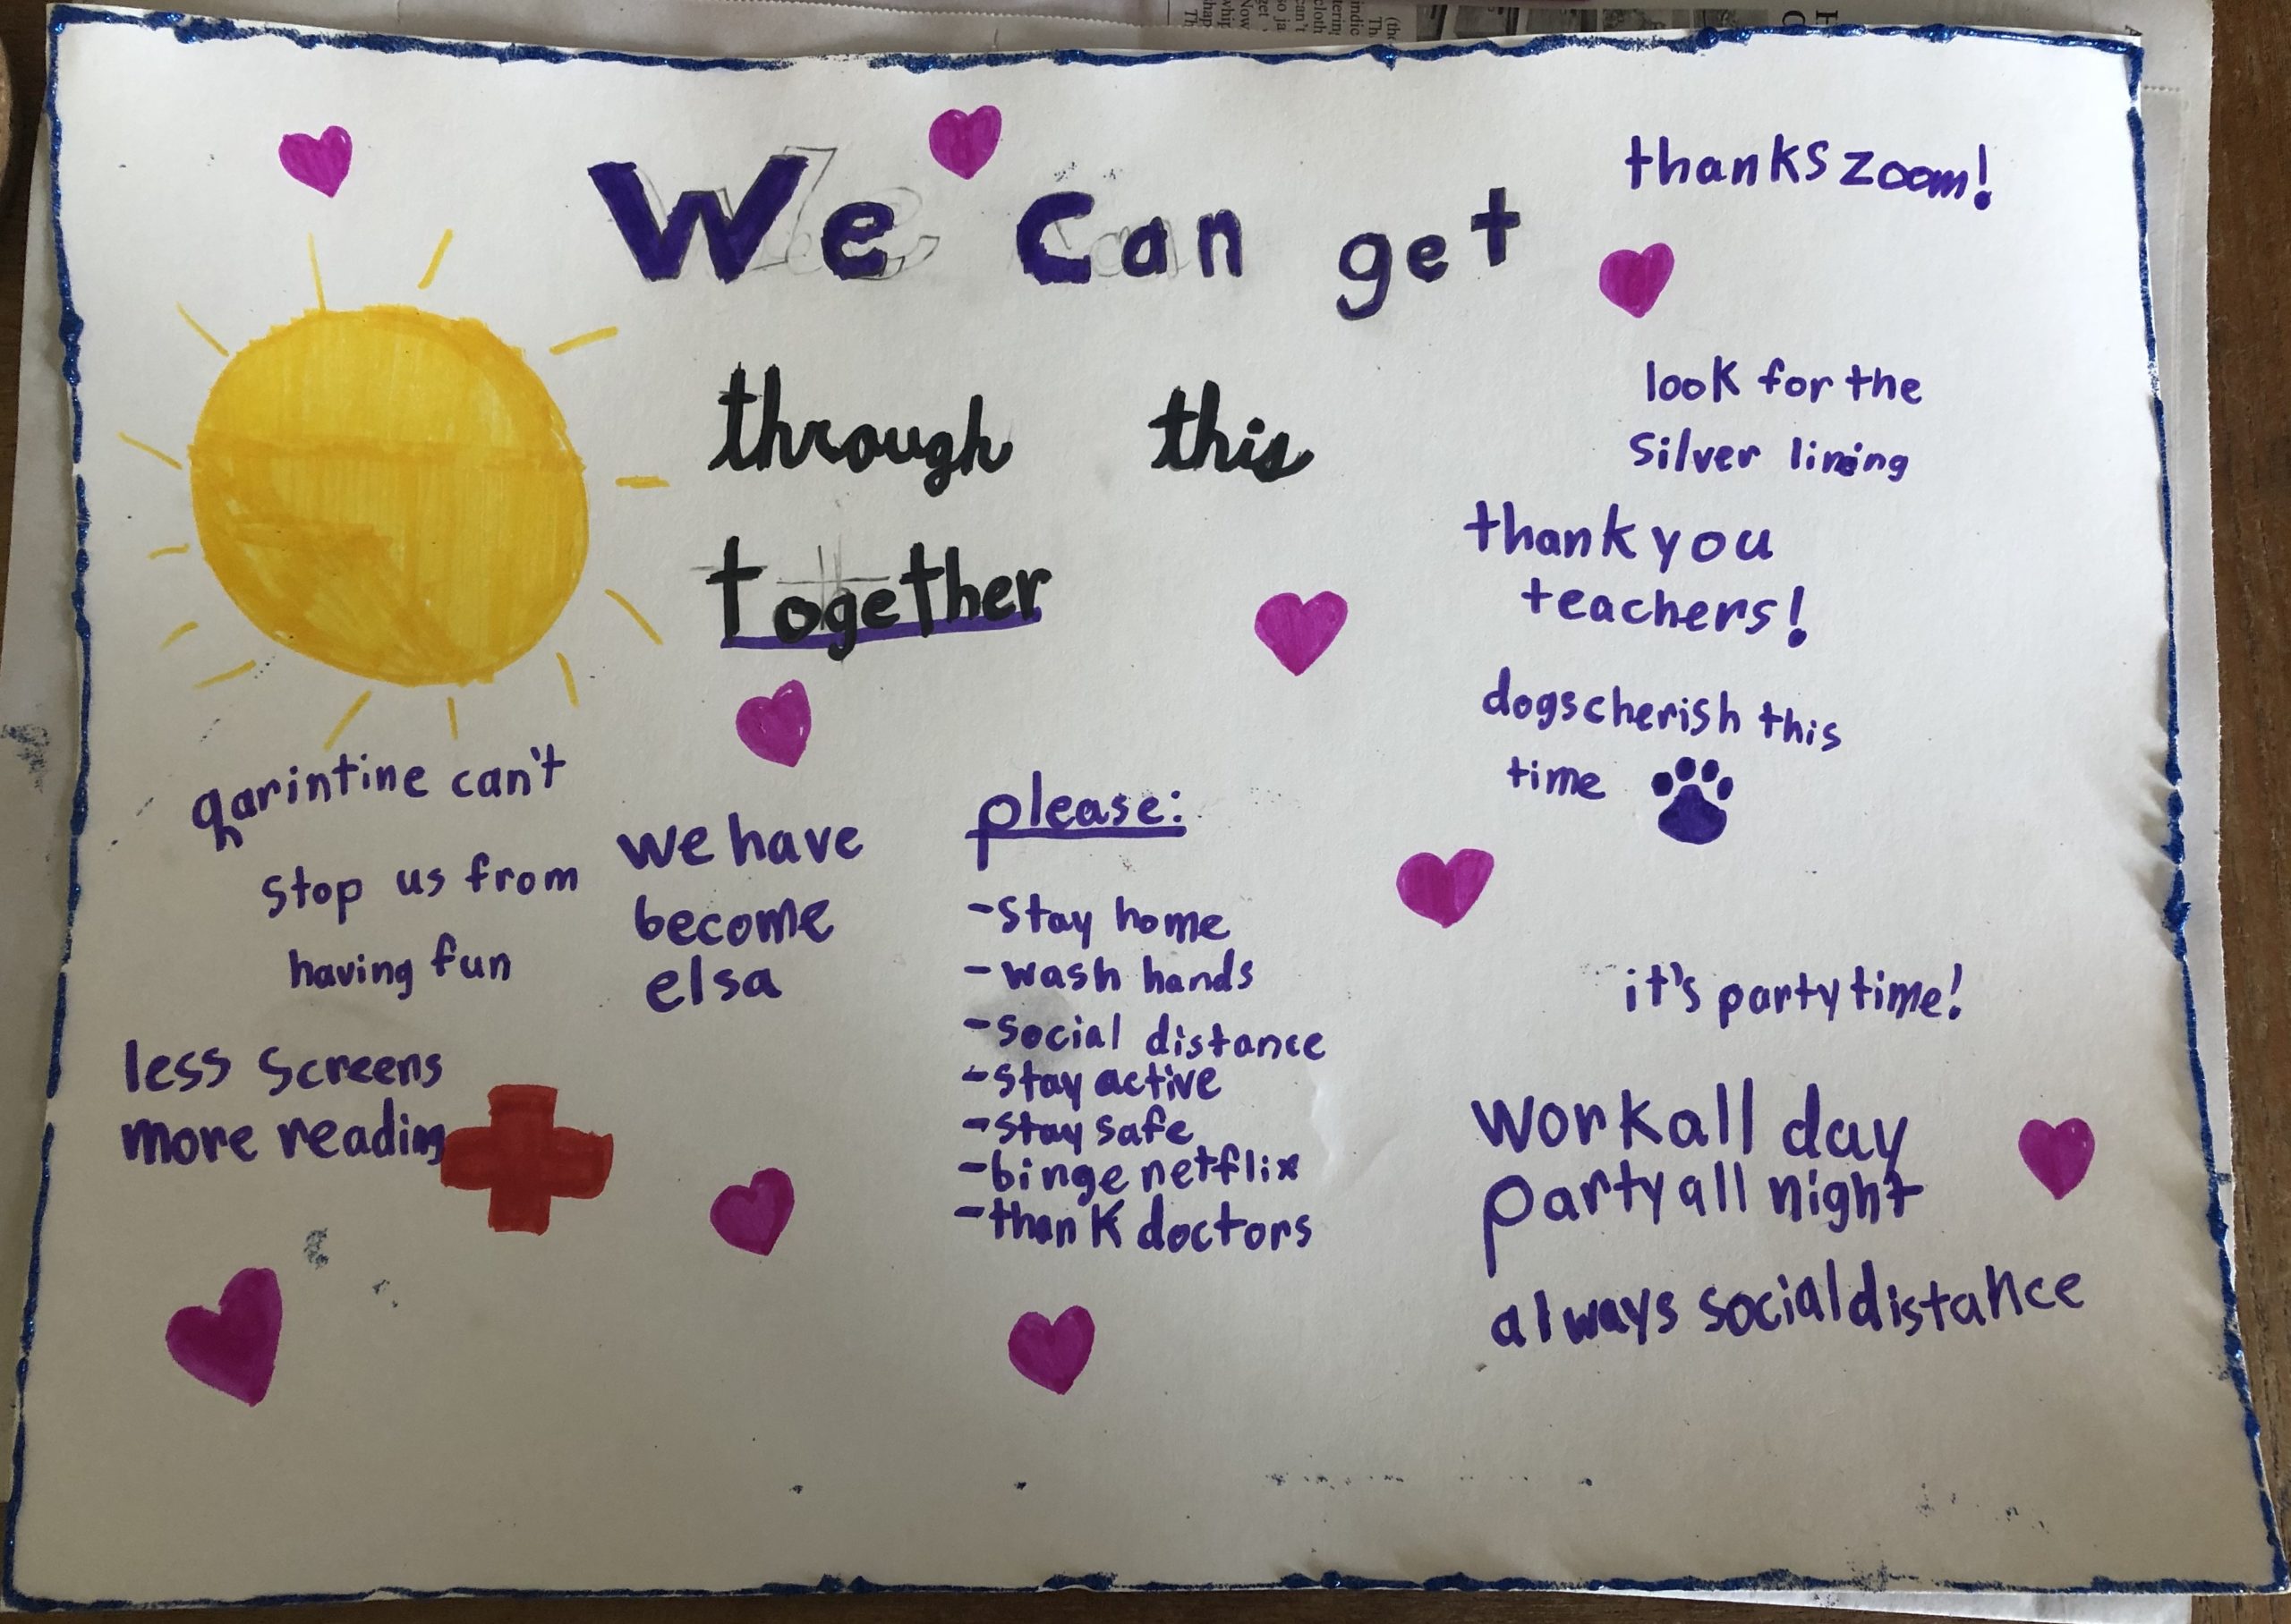 We Can get
through this
together
thanks zoom!
look for the
silver lining
thank you
teachers!
dogs cherish this
time
qarintine can't
stop us from
having fun
we have
become
elsa
less screens
more reading
please:
-stay home
-wash hands
-social distance
-stay active
-stay safe
-binge netflix
-thank doctors
it's party time!
work all day
party all night
always social distance